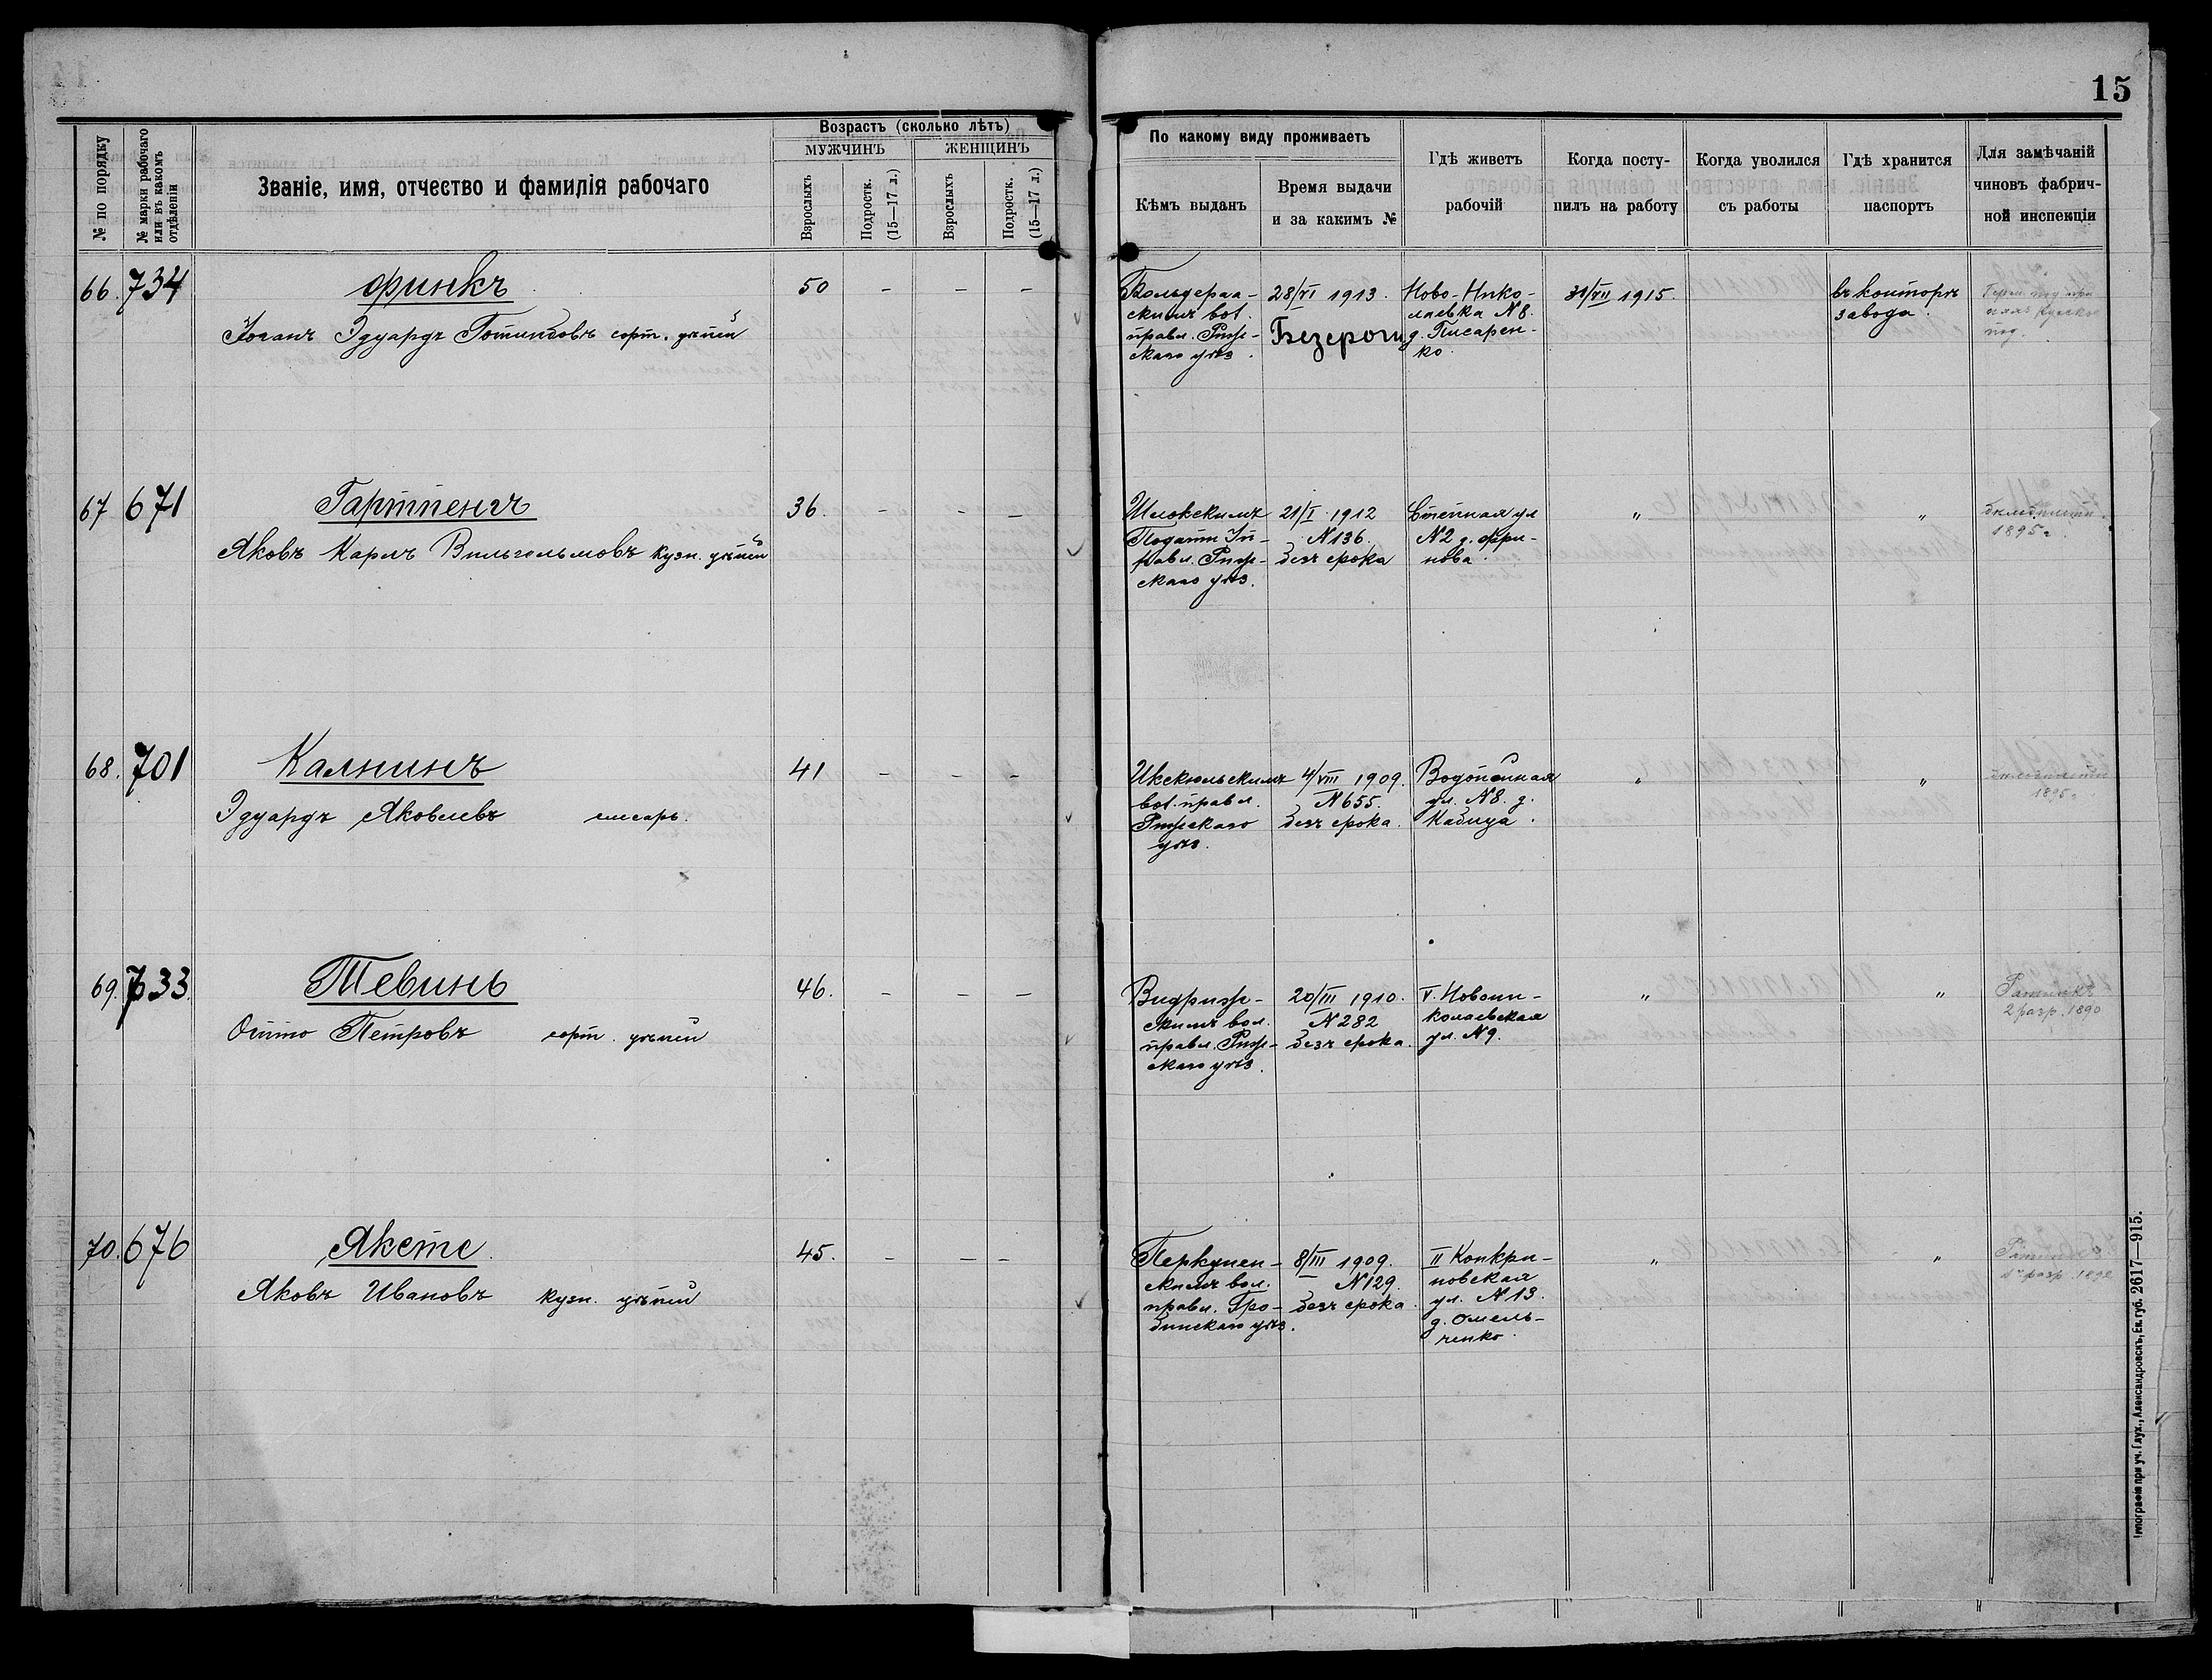 15
№ по порядку
№ марки рабочаго или въ какомъ отдѣленіи
Званіе, имя, отчество и фамилія рабочаго
Возрастъ (сколько лѣтъ)
МУЖЧИНЪ
ЖЕНЩИНЪ
Взрослыхъ
Подростк. (15—17 л.)
Взрослыхъ
Подростк. (15—17 л.)
По какому виду проживаетъ
Кѣмъ выданъ
Время выдачи
и за какимъ №
Гдѣ живетъ
рабочій
Когда посту-
пилъ на работу
Когда уволился
съ работы
Гдѣ хранится
паспортъ
Для замѣчаній
чиновъ фабрич-
ной инспекціи
66. 734 Финкъ 50 — — —
Іоганъ Эдуардъ Готлибовъ сорт. цѣпей
Больдераа-
скимъ вол.
правл. Риж-
скаго уѣз.
28/VI 1913.
Безсрочн
Ново-Нико-
лаевка №8.
д. Писарен-
ко.
31/VII 1915.
въ конторѣ
завода.
67 671 Гартпенгъ 36. — — —
Яковъ Карлъ Вильгельмовъ кузн. цѣпей
Шлокскимъ
Податн. Уп-
равл. Риж-
скаго уѣз.
21/I 1912
№136.
безъ срока
Степная ул
№2 д. Фри-
нова
"
"
1895 г.
68. 701 Калнинъ 41 — — —
Эдуардъ Яковлевъ слесарь.
Икскюльскимъ
вол. правл.
Рижскаго
уѣз.
4/VIII 1909.
№655.
безъ срока.
Водопойная
ул. №8. д.
Кабица.
"
"
1895 г.
69. 733. Тевинь 46. — — —
Отто Петровъ сорт. цѣпей
Видриж-
скимъ вол.
правл. Риж-
скаго уѣз.
20/III 1910.
№282
безъ срока.
V. Новони-
колаевская
ул. №9.
"
"
Ратникъ
2 разр. 1890
70. 676 Яксте 45. — — —
Яковъ Ивановъ кузн. цѣпей
Перкунен-
скимъ вол.
правл. Гро-
бинскаго уѣз.
8/III 1909.
№129.
безъ срока.
II Конкри-
новская
ул. №13.
д. Омель-
ченко.
"
"
разр. 1892
Типографія при уч. Глух., Александровскъ, Ек. губ. 2617—915.